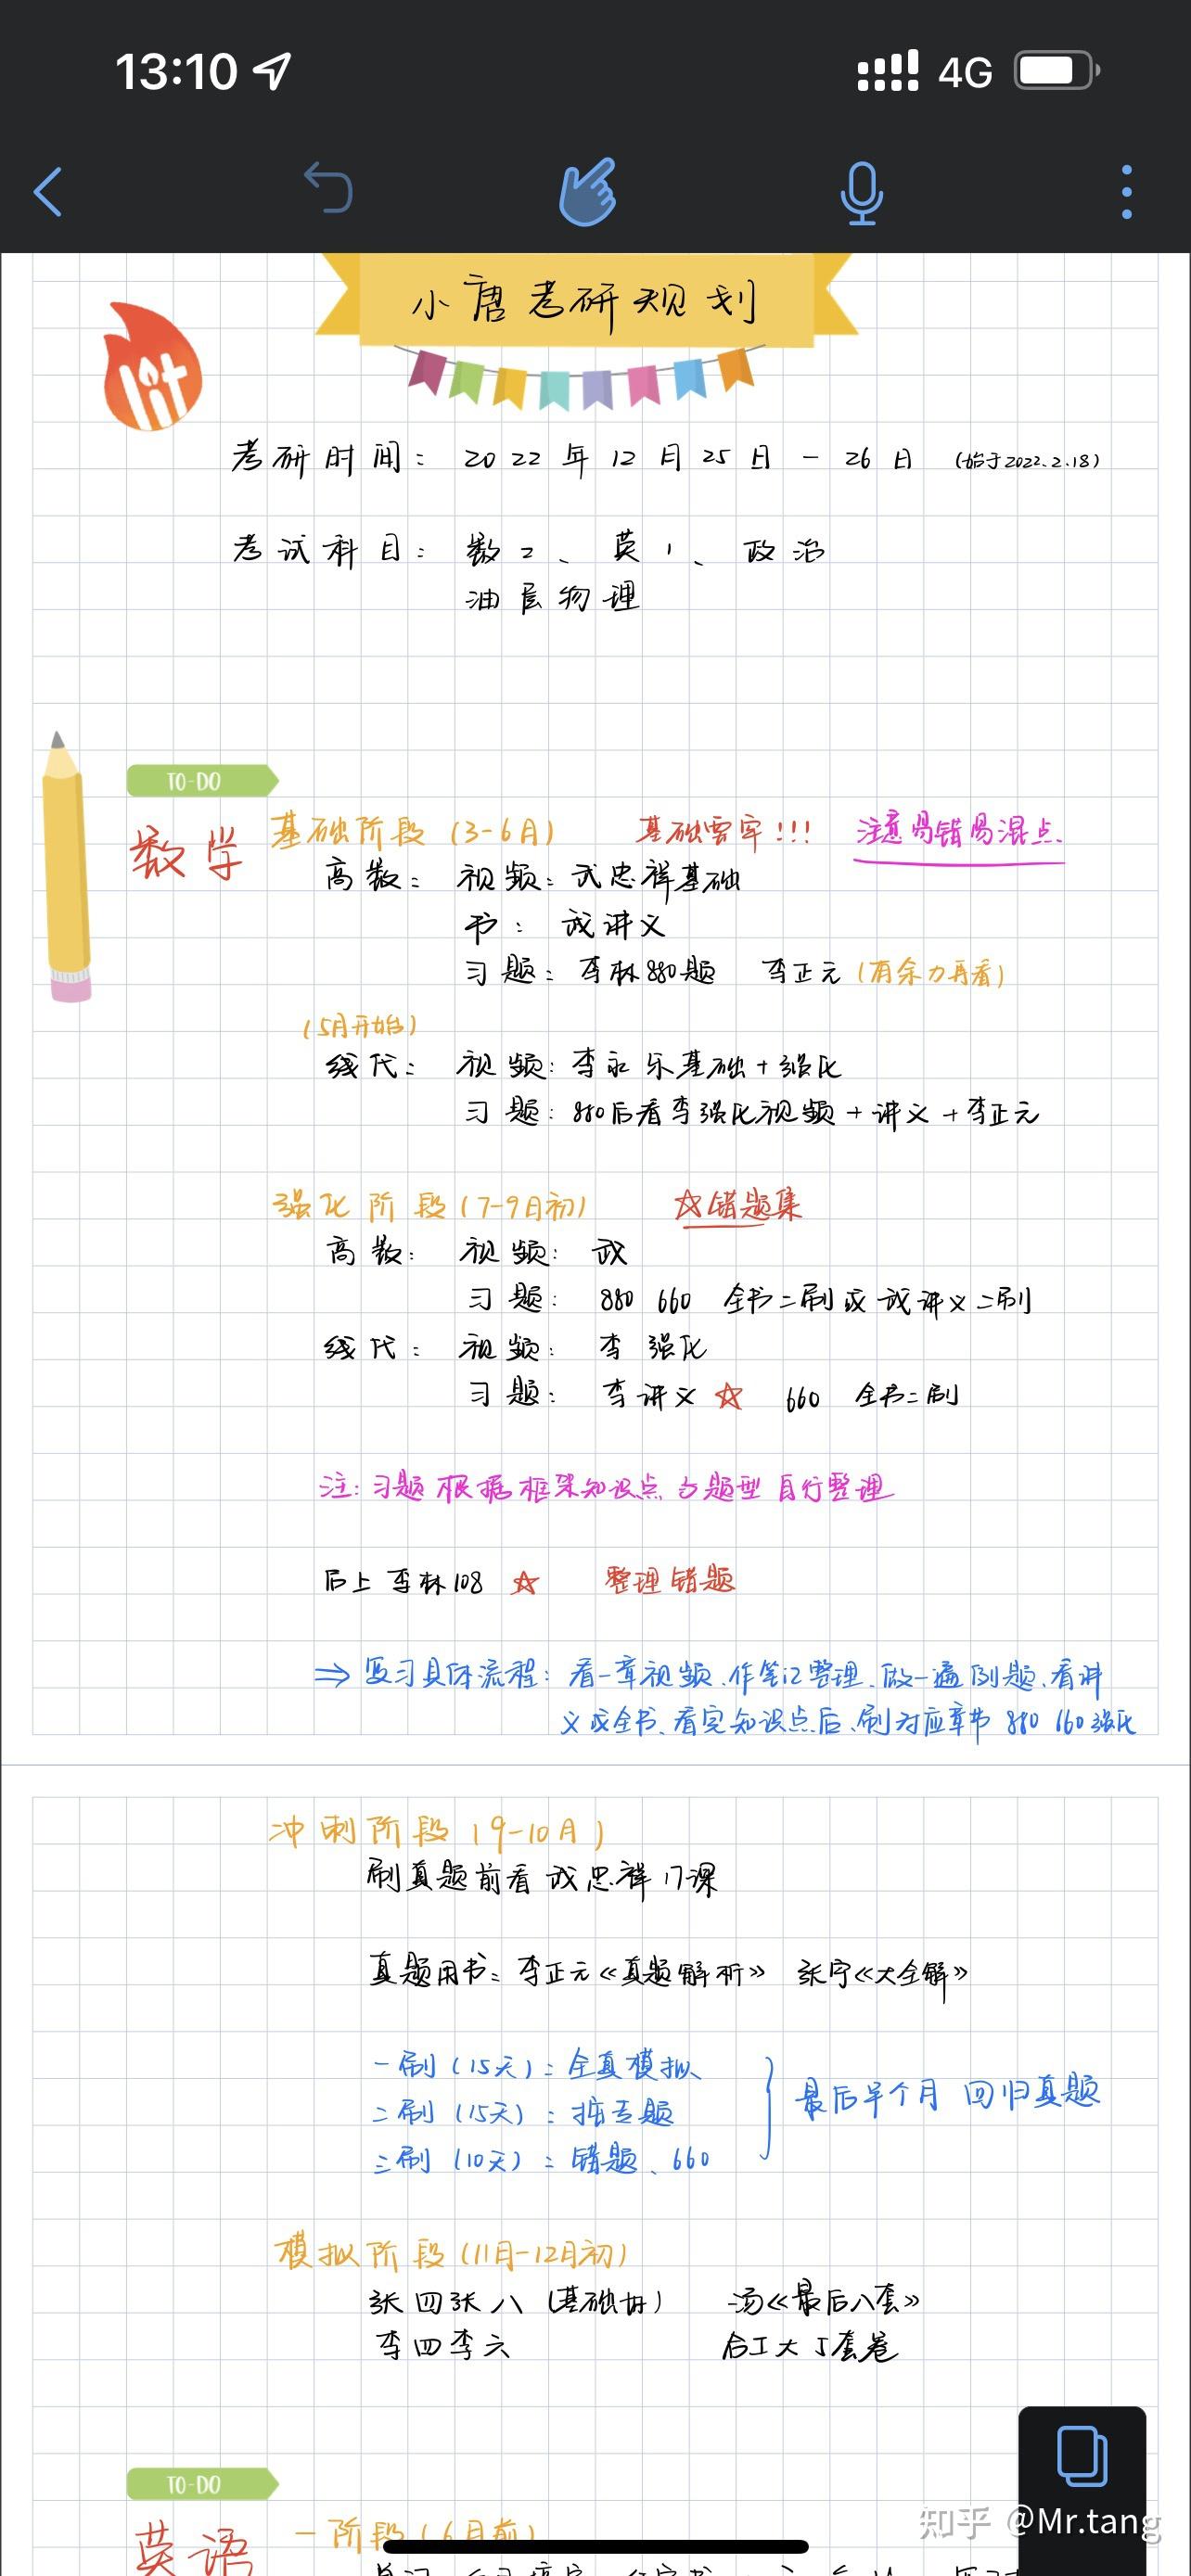 13:10 4G
小唐考研规划
lit
考研时间：2022年12月25日-26日（始于2022.2.18）
考试科目：数2、英1、政治
油层物理
TO-DO
数学 基础阶段（3-6月） 基础要牢!!! 注意易错易混点
高数：视频：武忠祥基础
书：武讲义
习题：李林880题 李正元（有余力再看）
（5月开始）
线代：视频：李永乐基础+强化
习题：880后看李强化视频+讲义+李正元
强化阶段（7-9月初） ☆错题集
高数：视频：武
习题：880 660 全书二刷或武讲义二刷
线代：视频：李 强化
习题：李讲义☆ 660 全书二刷
注：习题根据框架知识点与题型自行整理
后上李林108☆ 整理错题
⇒复习具体流程：看一章视频、作笔记整理、做一遍例题、看讲
义或全书、看完知识点后、刷对应章节 880 660 强化
冲刺阶段（9-10月）
刷真题前看武忠祥17课
真题用书：李正元《真题解析》 张宇《大全解》
一刷（15天）：全真模拟
二刷（15天）：按专题
三刷（10天）：错题、660
最后半个月 回归真题
模拟阶段（11月-12月初）
张四张八（基础好） 汤《最后八套》
李四李六 合工大5套卷
TO-DO
英语 一阶段（6月前）
知乎 @Mr.tang